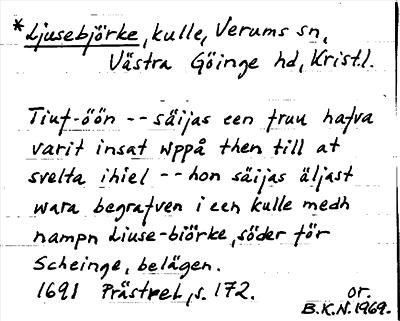 * Ljusebjörke, kulle, Verums sn,
Västra Göinge hd, Krist.l.
Tiuf-öön -- säijas een fruu hafva
varit insat wppå then till at
svelta ihiel -- hon säijas äljast
wara begrafven i een kulle medh
nampn Liuse-biörke, söder för
Scheinge, belägen.
1691 Prästrel, s. 172.
or.
B.K.N. 1969.